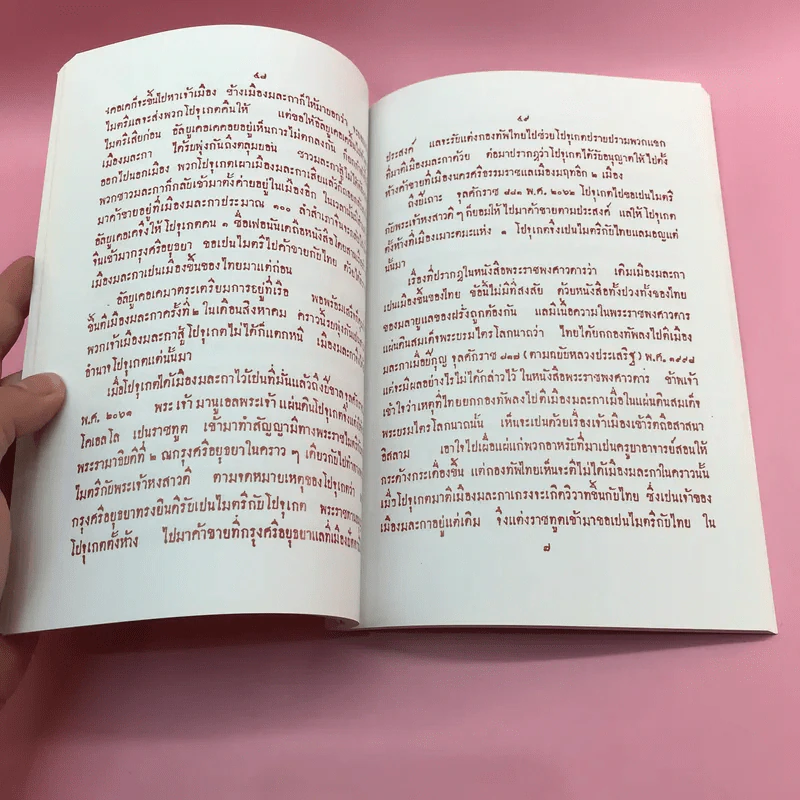 ๔๘
เคอเคก็จะขึ้นไปหาเจ้าเมือง ข้างเมืองมละกาก็ให้มาบอกว่า
ไมตรีแลจะส่งพวกโปจุเกตคืนให้ แต่ขอให้อัลยูเคอเค
ไมตรีเสียก่อน อัลยูเคอเคคอยอยู่เห็นการไม่ตกลงกัน
เมืองมละกา ได้รบพุ่งกันถึงตลุมบอน ชาวมละกา
ออกไปนอกเมือง พวกโปจุเกตเผาเมืองมละกาเสียแล้วก็
พวกชาวมละกาก็กลับเข้ามาตั้งค่ายอยู่ในเมืองอีก ในเวลา
มาค้าขายอยู่ที่เมืองมละกาประมาณ ๑๐๐ ลำ
อัลยูเคอเคจึงให้โปจุเกตคน ๑ ชื่อเฟอนันเดถือหนังสือโดยสาร
จีนเข้ามากรุงศรีอยุธยา ขอเปนไมตรีไปค้าขายกับไทย ด้วย
เมืองมละกาเปนเมืองขึ้นของไทยมาแต่ก่อน
อัลยูเคอเคมาตระเตรียมการอยู่ที่เรือ พอพร้อมเสร็จ
ขึ้นตีเมืองมละกาครั้งที่ ๒ ในเดือนสิงหาคม คราวนี้รบพุ่งกัน
พวกเจ้าเมืองมละกาสู้โปจุเกตไม่ได้ก็แตกหนี เมืองมละกา
อำนาจโปจุเกตแต่นั้นมา
เมื่อโปจุเกตได้เมืองมละกาไว้เปนที่มั่นแล้วถึงปีขาล
พ.ศ. ๒๐๖๑ พระเจ้ามานูเอลพระเจ้าแผ่นดินโปจุเกต
โคเอลโล เปนราชทูต เข้ามาทำสัญญามีทางพระราชไมตรี
พระรามาธิบดีที่ ๒ ณกรุงศรีอยุธยาในคราว ๆ เดียวกับ
ไมตรีกับพระเจ้าหงสาวดี ตามจดหมายเหตุของโปจุเกตว่า
กรุงศรีอยุธยาทรงยินดีรับเปนไมตรีกับโปจุเกต
โปจุเกตตั้งห้าง ไปมาค้าขายที่กรุงศรีอยุธยาแลที่เมือง
๔๙
ประสงค์ แลจะรับแต่งกองทัพไทยไปช่วยโปจุเกตปราบปรามพวกแขก
ที่มาตีเมืองมละกาด้วย ต่อมาปรากฏว่าโปจุเกตได้รับอนุญาตให้ไปตั้ง
ห้างค้าขายที่เมืองนครศรีธรรมราชแลเมืองมฤทอีก ๒ เมือง
ถึงปีเถาะ จุลศักราช ๘๘๑ พ.ศ. ๒๐๖๒ โปจุเกตไปขอเปนไมตรี
กับพระเจ้าหงสาวดี ๆ ก็ยอมให้ไปมาค้าขายตามประสงค์ แลให้โปจุเกต
ตั้งห้างที่เมืองเมาะตะมะแห่ง ๑ โปจุเกตจึงเปนไมตรีกับไทยแลมอญแต่
นั้นมา
เรื่องที่ปรากฏในหนังสือพระราชพงศาวดารว่า เดิมเมืองมละกา
เปนเมืองขึ้นของไทย ข้อนี้ไม่มีที่สงสัย ด้วยหนังสือทั้งปวงทั้งของไทย
ของมลายูแลของฝรั่งถูกต้องกัน แลมีเนื้อความในพระราชพงศาวดาร
แผ่นดินสมเด็จพระบรมไตรโลกนาถว่า ไทยได้ยกกองทัพลงไปตีเมือง
มละกาเมื่อปีกุญ จุลศักราช ๘๑๗ (ตามฉบับหลวงประเสริฐ) พ.ศ. ๑๙๙๘
แต่จะมีผลอย่างไรไม่ได้กล่าวไว้ ในหนังสือพระราชพงศาวดาร ข้าพเจ้า
เข้าใจว่าเหตุที่ไทยยกกองทัพลงไปตีเมืองมละกาเมื่อในแผ่นดินสมเด็จ
พระบรมไตรโลกนาถนั้น เห็นจะเปนด้วยเรื่องเจ้าเมืองเข้ารีตถือสาสนา
อิสลาม เอาใจไปเผื่อแผ่แก่พวกอาหรับที่มาเปนครูบาอาจารย์สอนให้
กระด้างกระเดื่องขึ้น แต่กองทัพไทยเห็นจะตีไม่ได้เมืองมละกาในคราวนั้น
เมื่อโปจุเกตมาตีเมืองมละกาเกรงจะเกิดวิวาทขึ้นกับไทย ซึ่งเปนเจ้าของ
เมืองมละกาอยู่แต่เดิม จึงแต่งราชทูตเข้ามาขอเปนไมตรีกับไทย ใน
๗